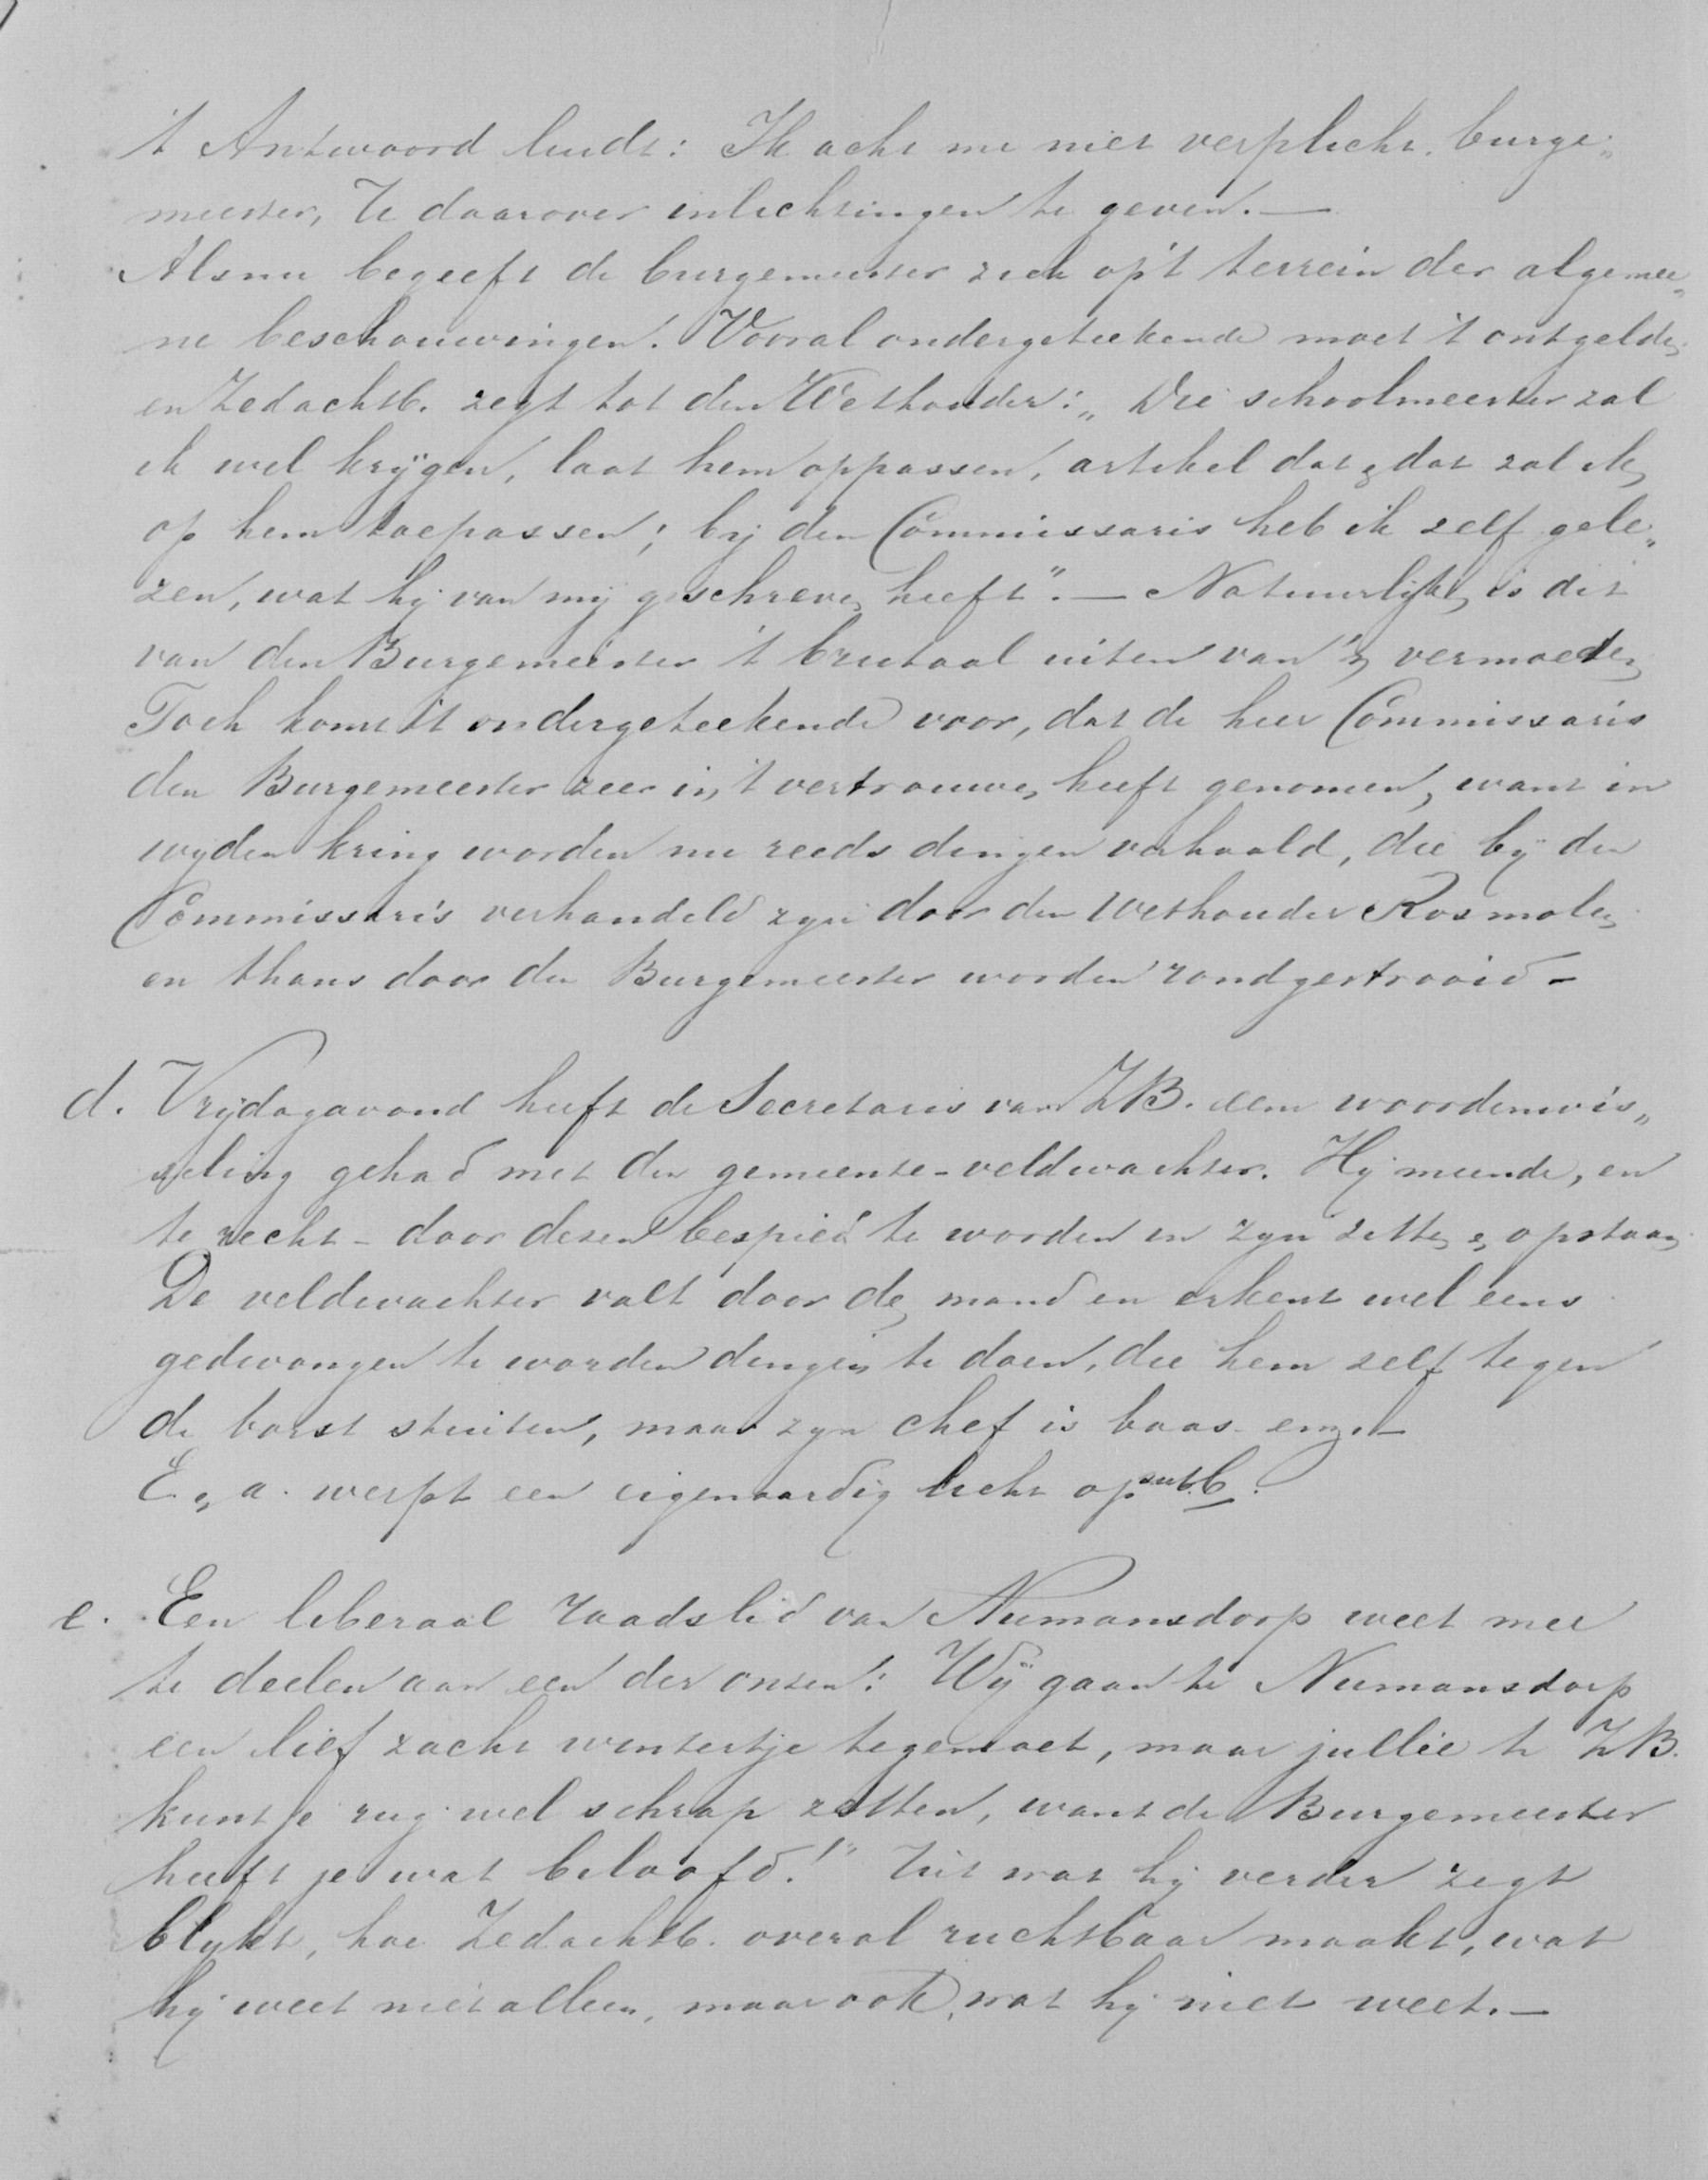 't Antwoord luidt: Ik acht me niet verplicht, burge„
meester, U daarover inlichtingen te geven. —
Alsnu begeeft de burgemeester zich op 't terrein der algemee„
ne beschouwingen. Vooral ondergeteekende moet 't ontgelden
en ZEdachtb. zegt tot den Wethouder: „Die schoolmeester zal
ik wel krijgen, laat hem oppassen, artikel dat & dat zal ik
op hem toepassen; bij den Commissaris heb ik zelf gele„
zen, wat hij van mij geschreven heeft". — Natuurlijk is dit
van den Burgemeester 't brutaal uiten van 'n vermoeden
Toch komt 't ondergeteekende voor, dat de heer Commissaris
den Burgemeester zeer in 't vertrouwen heeft genomen, want in
wijden kring worden nu reeds dingen verhaald, die bij den
Commissaris verhandeld zijn door den Wethouder Rosmolen
en thans door den Burgemeester worden rondgestrooid —
d. Vrijdagavond heeft de Secretaris van ZB. een woordenwis„
seling gehad met den gemeente-veldwachter. Hij meende, en
te recht - door dezen bespied te worden in zijn zitten en opstaan
De veldwachter valt door de mand en erkent wel eens
gedwongen te worden dingen te doen, die hem zelf tegen
de borst stuiten, maar zijn chef is baas enz. —
E. a. werpt een eigenaardig licht op sub b.
e. Een liberaal raadslid van Numansdorp weet mee
te deelen aan een der onzen: Wij gaan te Numansdorp
een lief zacht wintertje tegemoet, maar jullie te ZB.
kunt je rug wel schrap zetten, want de Burgemeester
heeft je wat beloofd!" Uit wat hij verder zegt
blijkt, hoe ZEdachtb. overal ruchtbaar maakt, wat
hij weet niet alleen, maar ook, wat hij niet weet. —